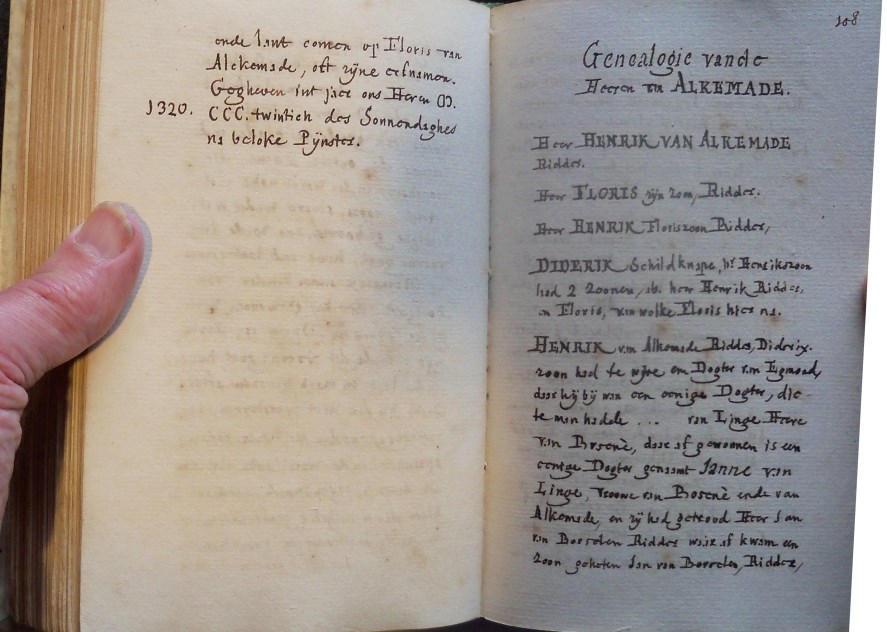 ende sant comen op Floris van
Alckemade, oft zijne oefnamen.
Gegheven int jaer ons Heren M.
1320. CCC. twintich des Sonnendaghes
na beloke Pijnster.
108
Genealogie vande
Heeren van ALKEMADE.
Heer HENRIK VAN ALKEMADE
Ridder.
Heer FLORIS zijn zoon, Ridder.
Heer HENRIK Floriszoon Ridder,
DIDERIK Schildknape, hr Henrikszoon
had 2 zoonen, als heer Henrik Ridder,
en Floris, van welke Floris hier na.
HENRIK van Alkemade Ridder, Diderix-
zoon had te wijve een Dogter van Egmond,
daar hij bij wan een eenige Dogter, die
te man hadde ... van Linge Heere
van Broenè, daar af gewonnen is een
eenige Dogter genaamt Janne van
Linge, Vrouwe van Bosenè ende van
Alkemade, en zij had getroud Heer Jan
van Borselen Ridder waar af kwam een
zoon geheten Jan van Borselen, Ridder,